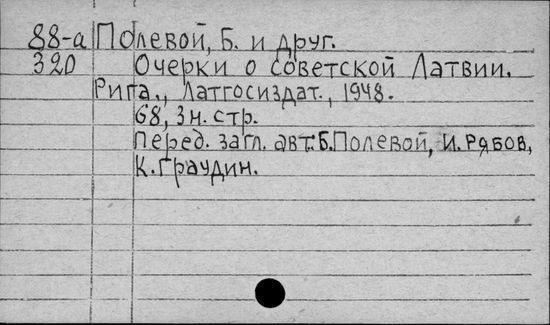 88-а Полевой, Б. и друг.
320 Очерки о советской Латвии.
Рига., Латгосиздат., 1948.
68, 3 н. стр.
Перед. загл. авт: Б. Полевой, И. Рябов,
К. Граудин.